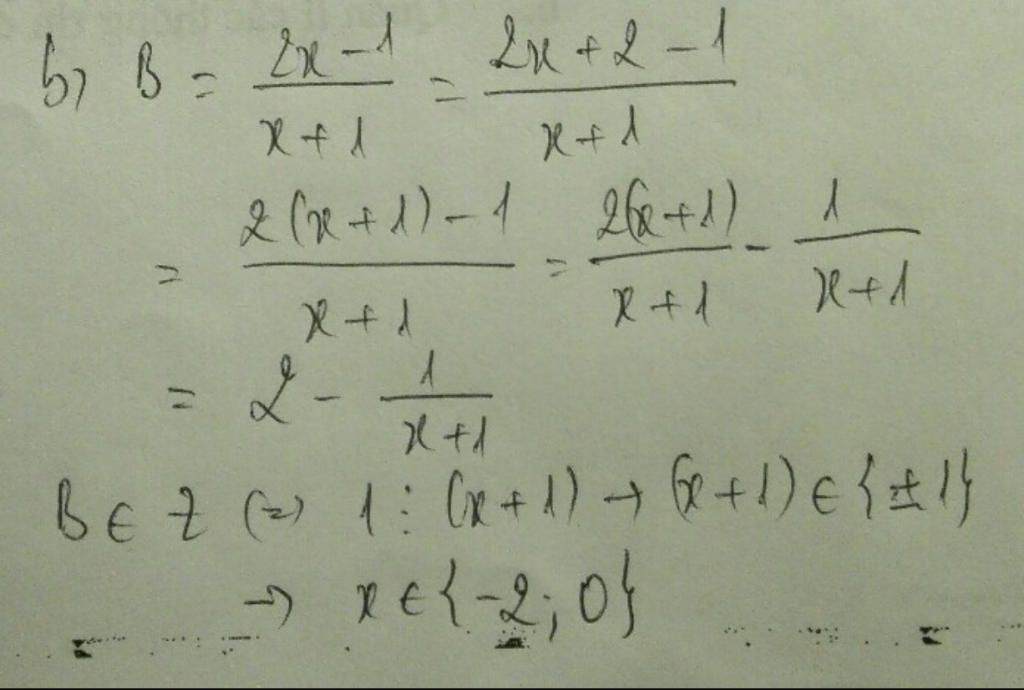 b) B = \frac{2x-1}{x+1} = \frac{2x+2-1}{x+1}
= \frac{2(x+1)-1}{x+1} = \frac{2(x+1)}{x+1} - \frac{1}{x+1}
= 2 - \frac{1}{x+1}
B ∈ Z (=) 1 ⋮ (x+1) → (x+1) ∈ {±1}
→ x ∈ {-2; 0}